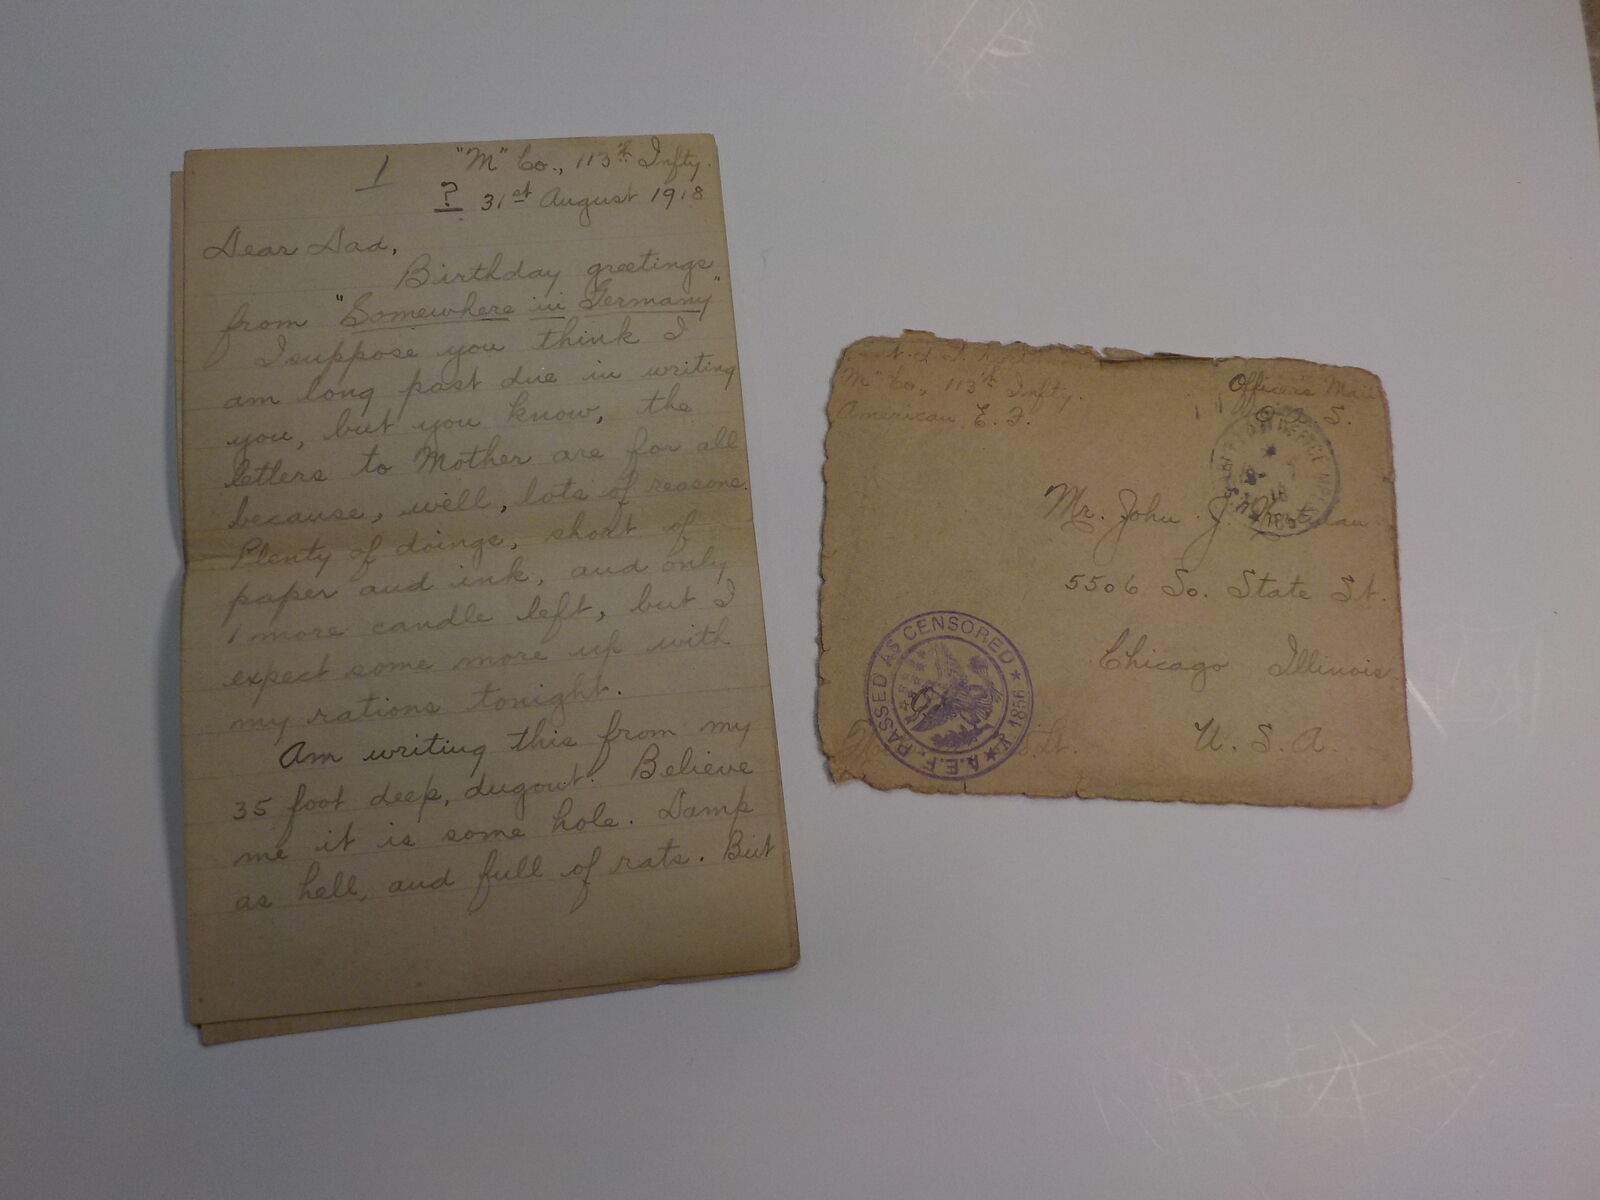 1 "M" Co., 113th Infty.
? 31st August 1918
Dear Dad,
Birthday greetings
from "Somewhere in Germany"
I suppose you think I
am long past due in writing
you, but you know, the
letters to Mother are for all
because, well, lots of reasons.
Plenty of doings, short of
paper and ink, and only
1 more candle left, but I
expect some more up with
my rations tonight.
Am writing this from my
35 foot deep, dugout. Believe
me it is some hole. Damp
as hell, and full of rats. But
"M" Co., 113th Infty.
American E. F.
Officer's Mail
Mr. John J.
5506 So. State St.
Chicago Illinois.
U. S. A.
PASSED AS CENSORED
1856 A.E.F.